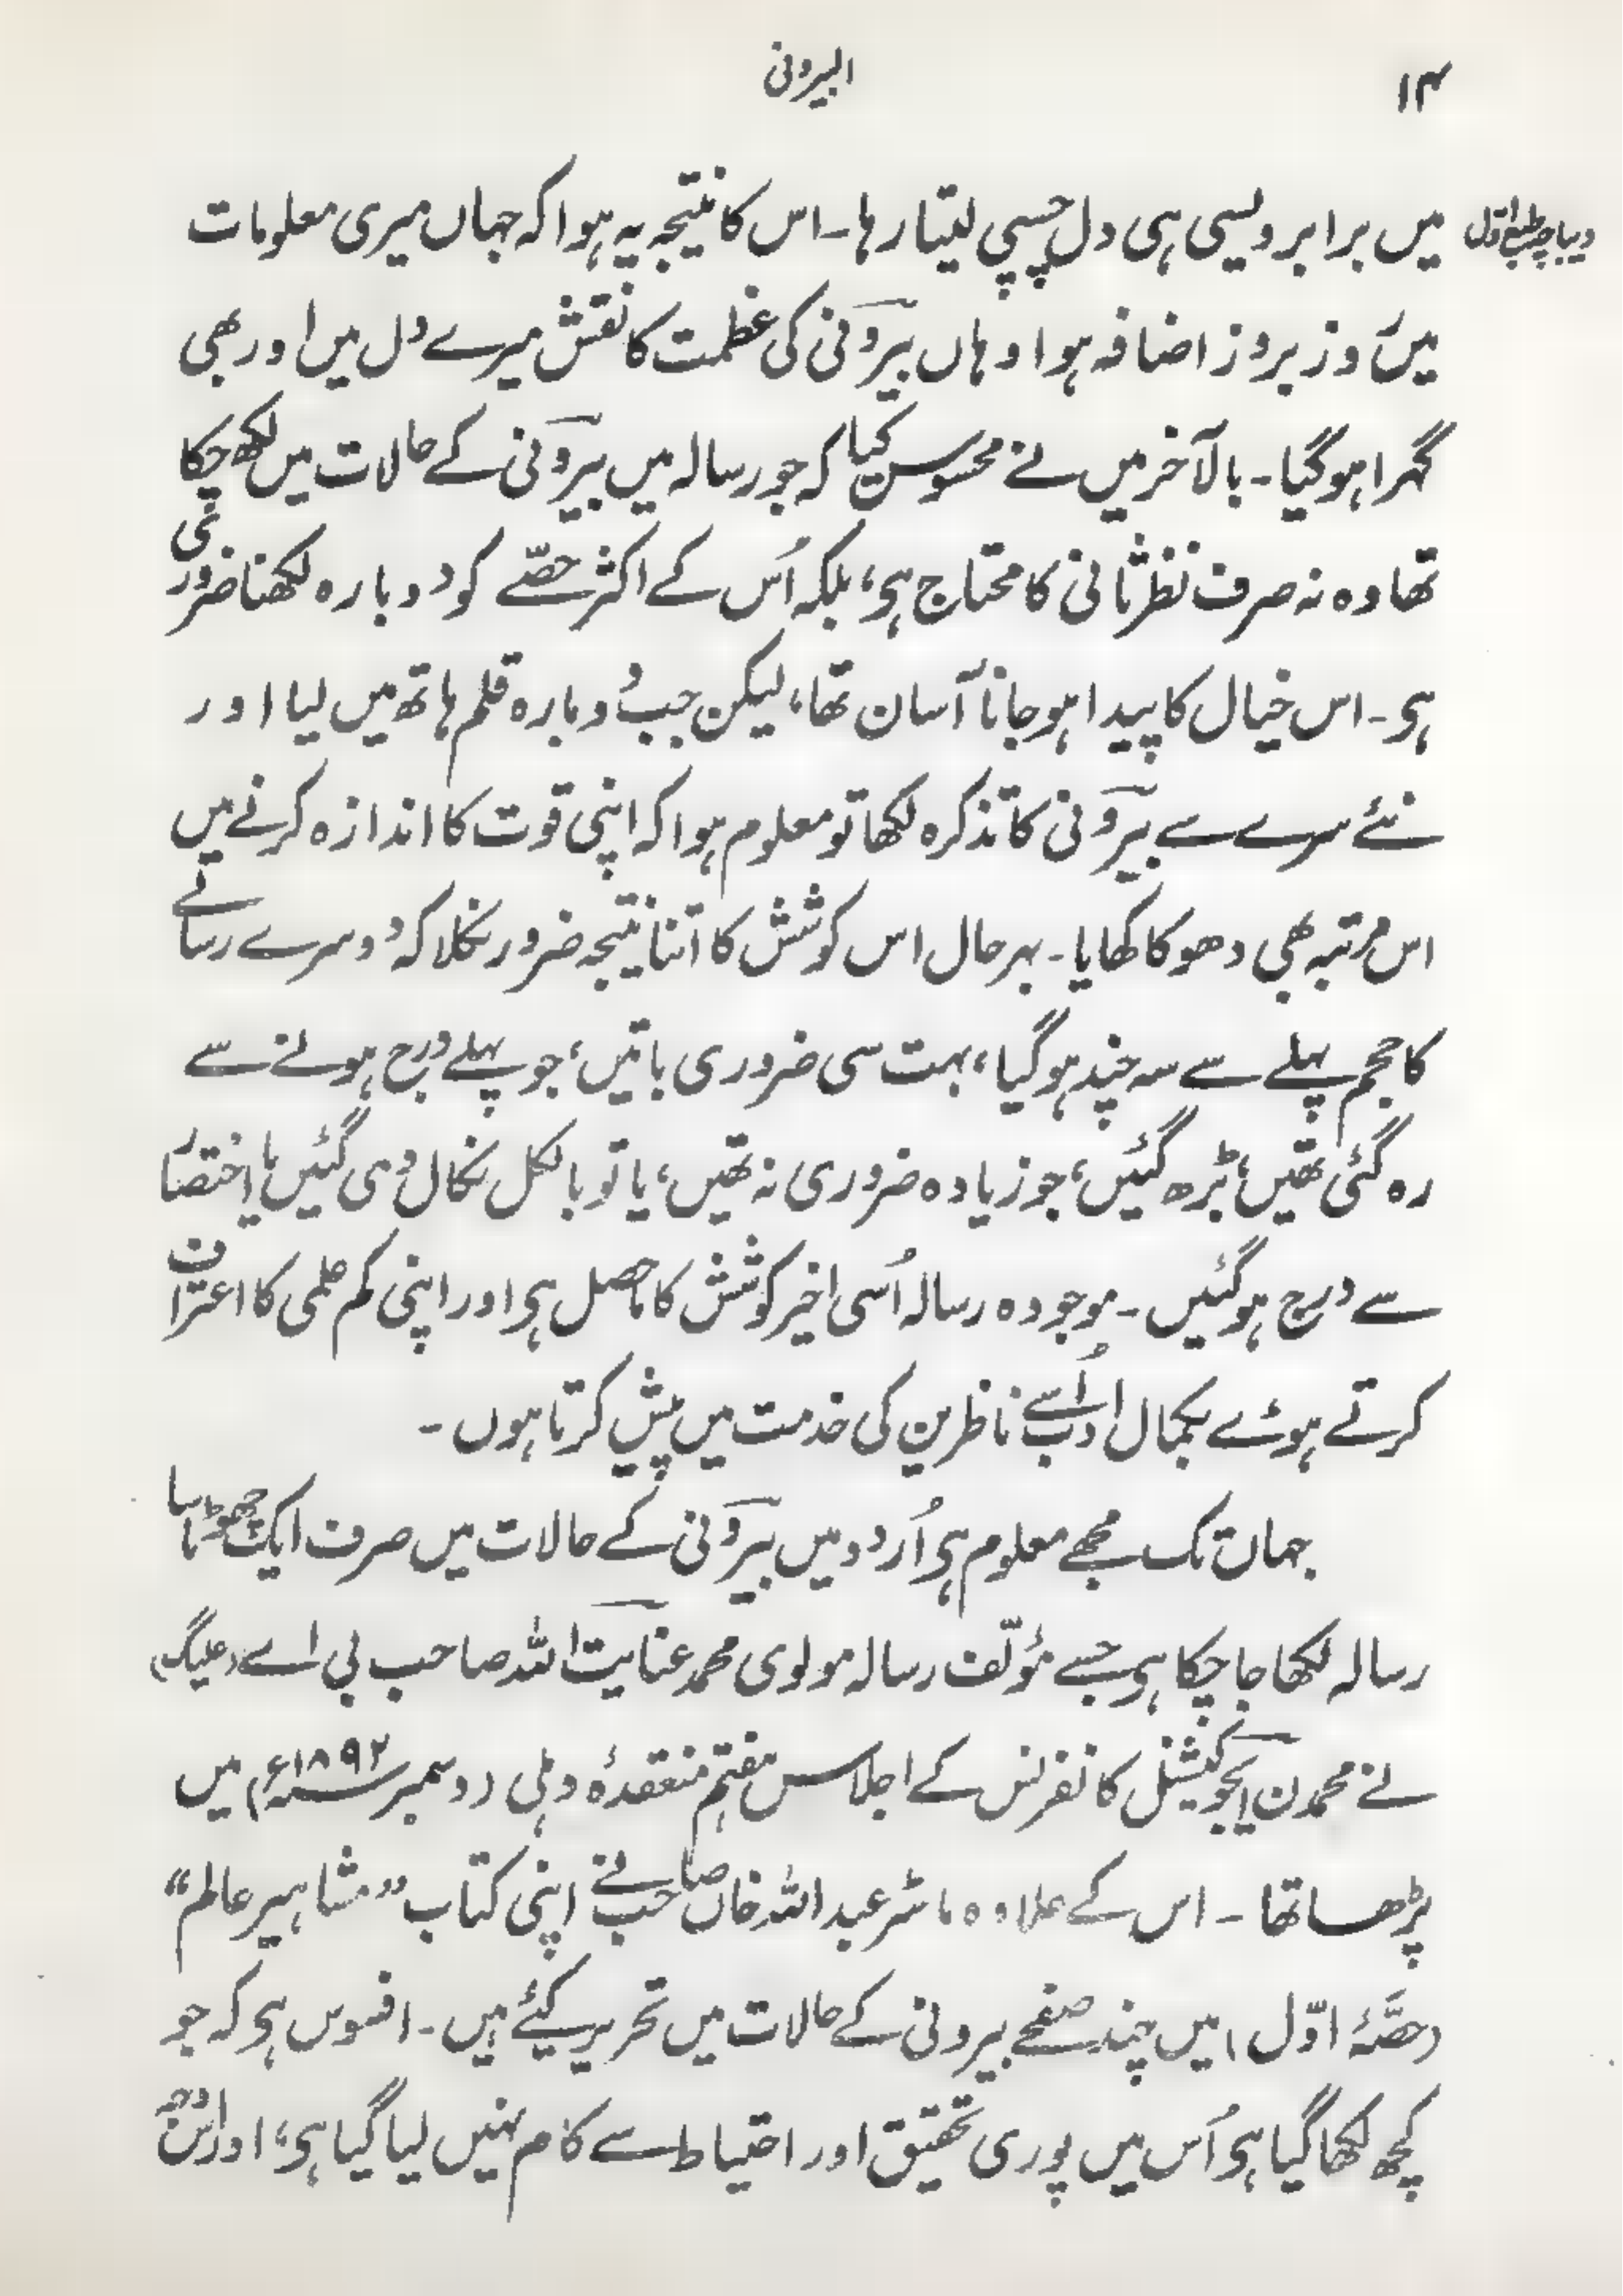 ۱۴
البیرونی
دیباچہ طبع اول
میں برابر ویسی ہی دل چسپی لیتا رہا۔ اس کا نتیجہ یہ ہوا کہ جہاں میری معلومات
میں روز بروز اضافہ ہوا وہاں بیرونی کی عظمت کا نقش میرے دل میں اور بھی
گہرا ہوگیا۔ بالآخر میں نے محسوس کیا کہ جو رسالہ میں بیرونی کے حالات میں لکھ چکا
تھا وہ نہ صرف نظر ثانی کا محتاج ہی، بلکہ اُس کے اکثر حصّے کو دوبارہ لکھنا ضروری
ہی۔ اس خیال کا پیدا ہوجانا آسان تھا، لیکن جب دوبارہ قلم ہاتھ میں لیا اور
نئے سرے سے بیرونی کا تذکرہ لکھا تو معلوم ہوا کہ اپنی قوت کا اندازہ کرنے میں
اس مرتبہ بھی دھوکا کھایا۔ بہرحال اس کوشش کا اتنا نتیجہ ضرور نکلا کہ دوسرے رسالے
کا حجم پہلے سے سہ چند ہوگیا، بہت سی ضروری باتیں، جو پہلے درج ہونے سے
رہ گئی تھیں، بڑھ گئیں، جو زیادہ ضروری نہ تھیں، یا تو بالکل نکال دی گئیں یا اختصار
سے درج ہوگئیں۔ موجودہ رسالہ اُسی اخیر کوشش کا ماحصل ہی اور اپنی کم علمی کا اعتراف
کرتے ہوئے بکمال ادب اُسے ناظرین کی خدمت میں پیش کرتا ہوں۔
جہاں تک مجھے معلوم ہی اُردو میں بیرونی کے حالات میں صرف ایک چھوٹا سا
رسالہ لکھا جا چکا ہی جسے مؤلّف رسالہ مولوی محمد عنایت اللہ صاحب بی اے (علیگ)
نے محمڈن ایجوکیشنل کانفرنس کے اجلاس ہفتم منعقدۂ دہلی (دسمبر ۱۸۹۲ء) میں
پڑھا تھا۔ اس کے علاوہ ماسٹر عبداللہ خاں صاحب نے اپنی کتاب ”مشاہیر عالم“
(حصّۂ اوّل) میں چند صفحے بیرونی کے حالات میں تحریر کیئے ہیں۔ افسوس ہی کہ جو
کچھ لکھا گیا ہی اُس میں پوری تحقیق اور احتیاط سے کام نہیں لیا گیا ہی، اور اس وجہ